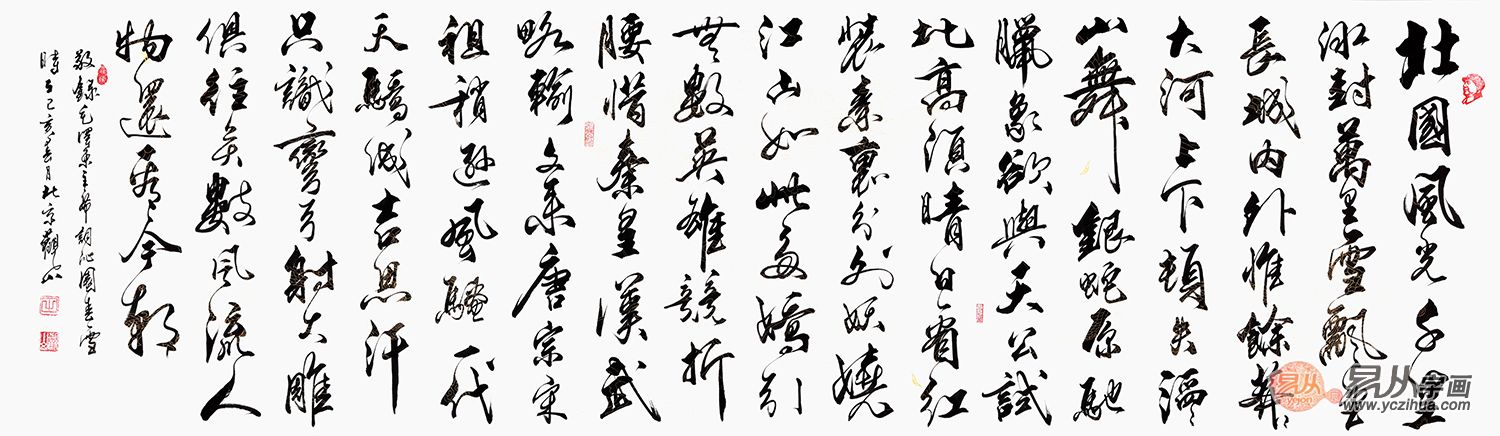 北國風光千里
冰封萬里雪飄望
長城内外惟餘莽莽
大河上下頓失滔滔
山舞銀蛇原馳
臘象欲與天公試
比高須晴日看紅
裝素裹分外妖嬈
江山如此多嬌引
無數英雄競折
腰惜秦皇漢武
略輸文采唐宗宋
祖稍遜風騷一代
天驕成吉思汗
只識彎弓射大雕
俱往矣數風流人
物還看今朝
敬錄毛澤東主席詞沁園春雪
時于己亥春月北京觀山
易从
易从字画
www.yczihua.com